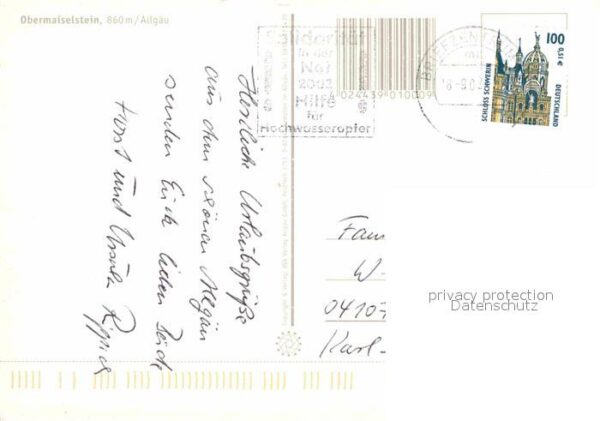 Obermaiselstein, 860 m/Allgäu
Solidarität
in der
Not
2002
Hilfe
für
Hochwasseropfer
02439010009
BRIEFZENTRUM
100
0,51€
SCHLOSS SCHWERIN
DEUTSCHLAND
Herzliche Urlaubsgrüße
aus dem schönen Allgäu
senden Euch lieben Beide
Horst und Ursula
Fam
W-
04107
Karl-
privacy protection
Datenschutz